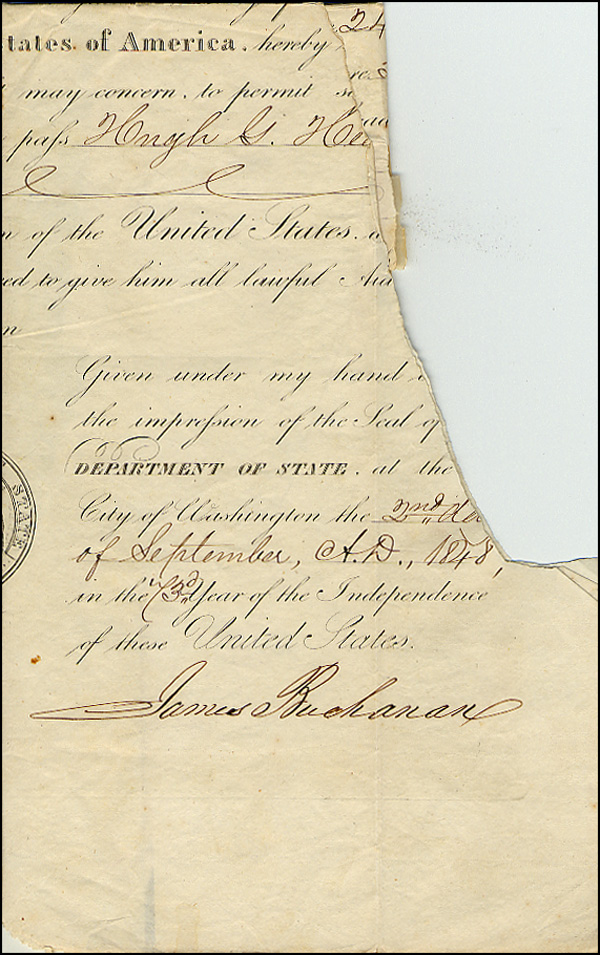 24
tates of America, hereby
may concern, to permit
pass Hugh G. He
n of the United States, a
ed to give him all lawful Aid
n
Given under my hand
the impression of the Seal of
DEPARTMENT OF STATE, at the
STATE
City of Washington the 2nd da
of September, A.D., 1848,
in the 73d Year of the Independence
of these United States.
James Buchanan